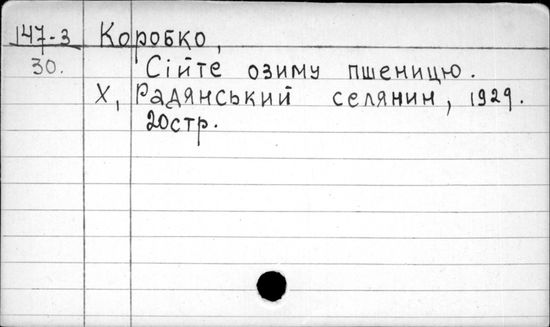 147-3 Коробко,
30. Сійте озиму пшеницю.
Х, Радянський селянин, 1929.
20стр.